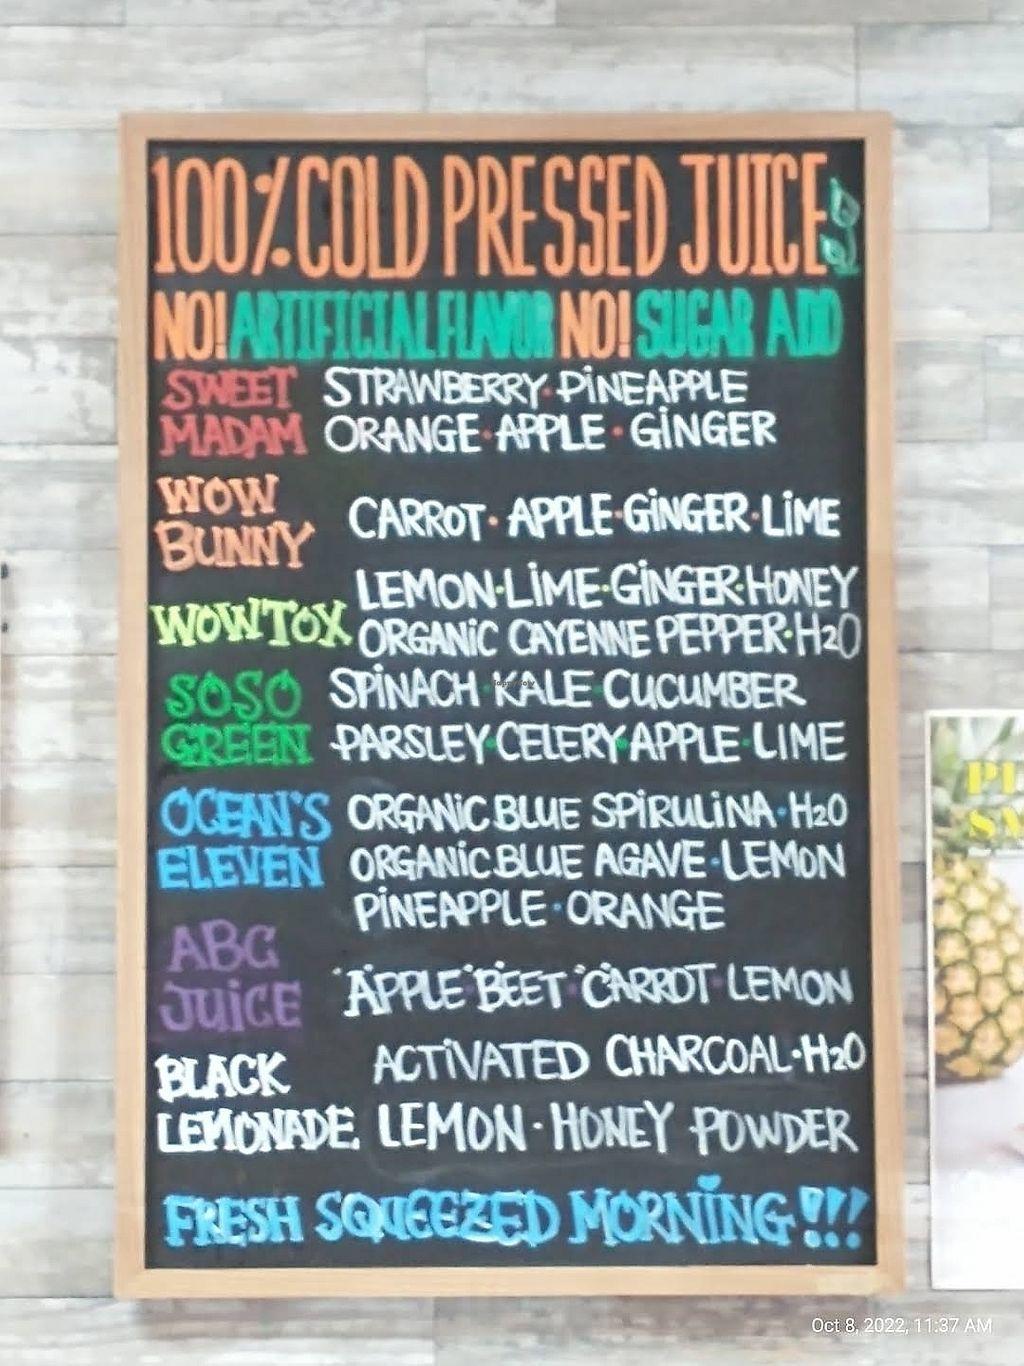 100% COLD PRESSED JUICE
NO! ARTIFICIAL FLAVOR NO! SUGAR ADD
SWEET MADAM
STRAWBERRY · PINEAPPLE
ORANGE · APPLE · GINGER
WOW BUNNY
CARROT · APPLE · GINGER · LIME
WOWTOX
LEMON · LIME · GINGER · HONEY
ORGANIC CAYENNE PEPPER · H2O
SOSO GREEN
SPINACH · KALE · CUCUMBER
PARSLEY · CELERY · APPLE · LIME
OCEAN'S ELEVEN
ORGANIC BLUE SPIRULINA · H2O
ORGANIC BLUE AGAVE · LEMON
PINEAPPLE · ORANGE
ABC JUICE
"APPLE" "BEET" "CARROT LEMON
BLACK LEMONADE
ACTIVATED CHARCOAL · H2O
LEMON · HONEY POWDER
FRESH SQUEEZED MORNING!!!
Oct 8, 2022, 11:37 AM